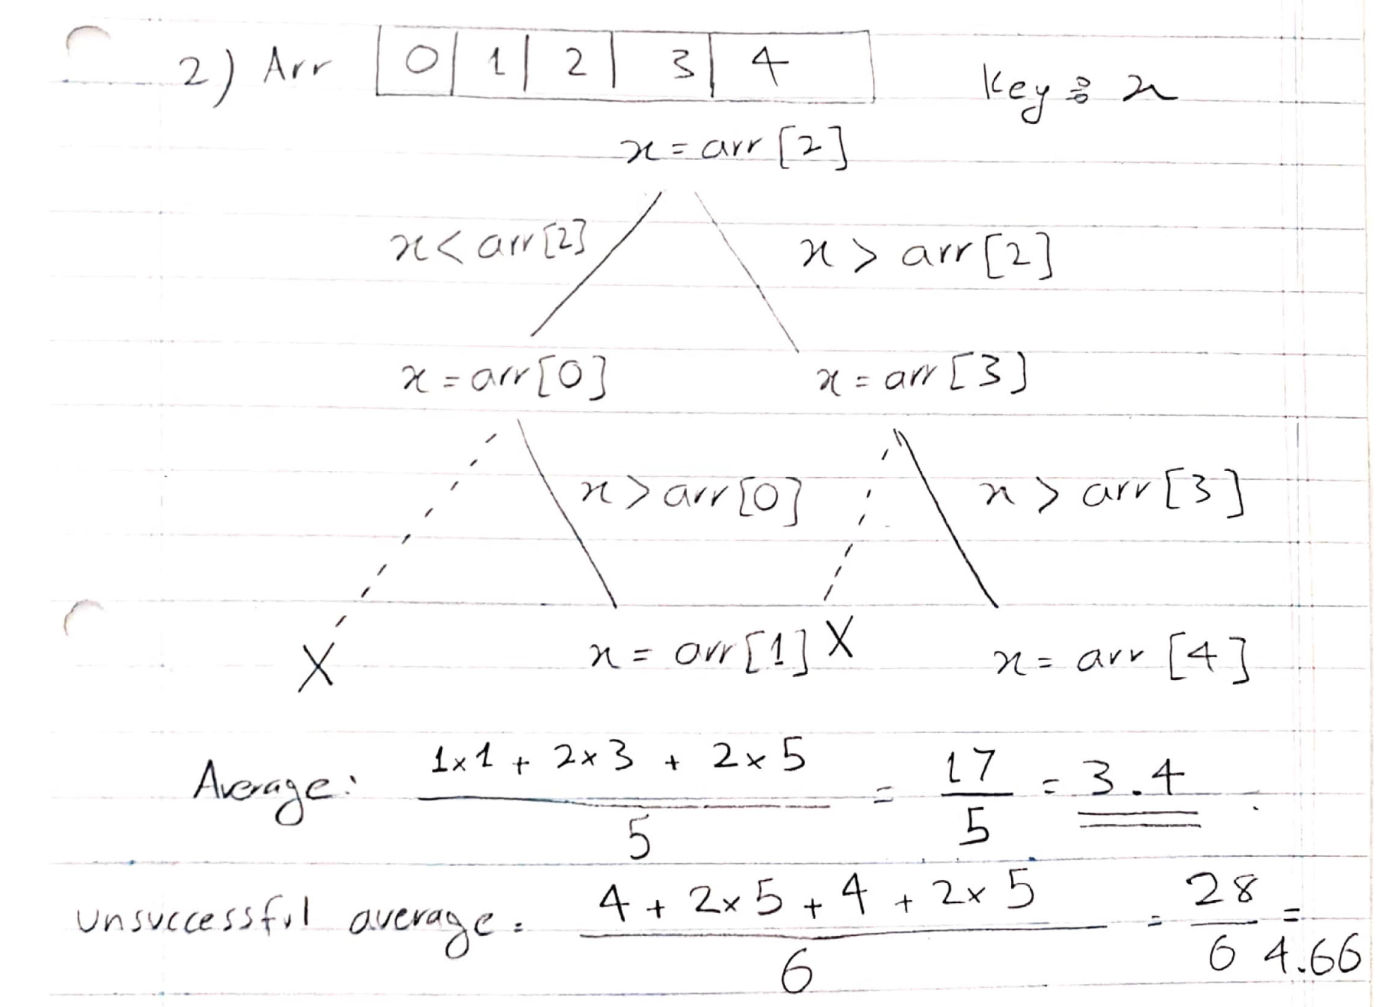 2) Arr 0 1 2 3 4 Key: x
x = arr [2]
x < arr [2] x > arr [2]
x = arr [0] x = arr [3]
x > arr [0] x > arr [3]
X x = arr [1] X x = arr [4]
Average: 1x1 + 2x3 + 2x5 / 5 = 17 / 5 = 3.4
Unsuccessful average = 4 + 2x5 + 4 + 2x5 / 6 = 28 / 6 = 4.66